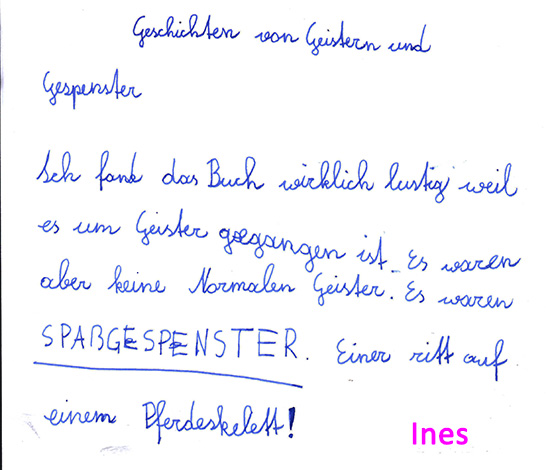 Geschichten von Geistern und
Gespenster
Ich fand das Buch wirklich lustig weil
es um Geister gegangen ist. Es waren
aber keine Normalen Geister. Es waren
SPAßGESPENSTER. Einer ritt auf
einem Pferdeskelett!
Ines